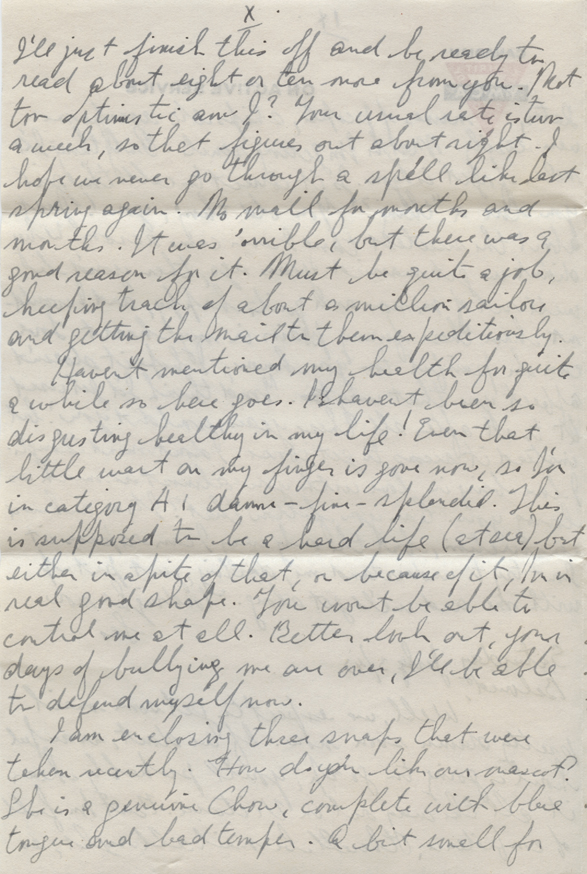 X
I'll just finish this off and be ready to
read about eight or ten more from you. Not
too optimistic am I? Your usual rate is two
a week, so that figures out about right. I
hope we never go through a spell like last
spring again. No mail for months and
months. It was 'orrible, but there was a
good reason for it. Must be quite a job,
keeping track of about a million sailors
and getting the mail to them expeditiously.
Haven't mentioned my health for quite
a while so here goes. I haven't been so
disgusting healthy in my life! Even that
little wart on my finger is gone now, so I'm
in category A1 damn-fine-splendid. This
is supposed to be a hard life (at sea) but
either in spite of that, or because of it, I'm in
real good shape. You won't be able to
control me at all. Better look out, your
days of bullying me are over, I'll be able
to defend myself now.
I am enclosing three snaps that were
taken recently. How do you like our mascot?
She is a genuine Chow, complete with blue
tongue and bad temper. A bit small for